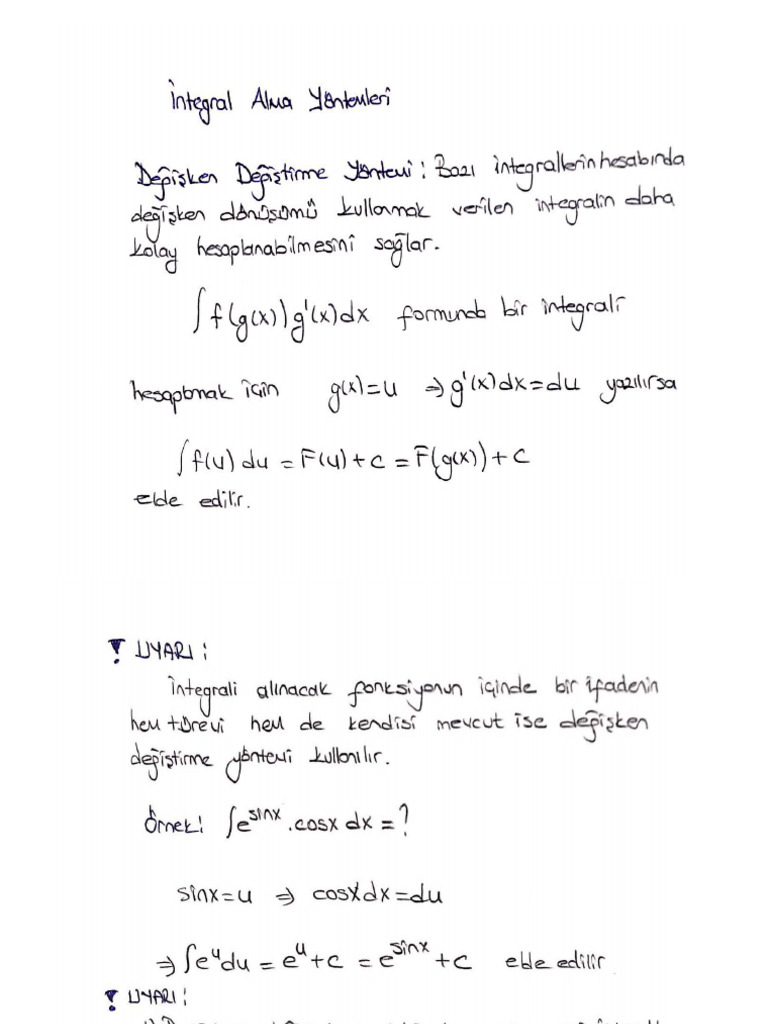 İntegral Alma Yöntemleri
Değişken Değiştirme Yöntemi: Bazı integrallerin hesabında
değişken dönüşümü kullanmak verilen integralin daha
kolay hesaplanabilmesini sağlar.
∫f(g(x))g'(x)dx formunda bir integrali
hesaplamak için g(x)=u ⇒ g'(x)dx=du yazılırsa
∫f(u)du = F(u)+c = F(g(x))+c
elde edilir.
! UYARI:
İntegrali alınacak fonksiyonun içinde bir ifadenin
hem türevi hem de kendisi mevcut ise değişken
değiştirme yöntemi kullanılır.
Örnek: ∫e^sinx.cosx dx = ?
sinx=u ⇒ cosxdx=du
⇒ ∫e^u du = e^u+c = e^sinx+c elde edilir
! UYARI: